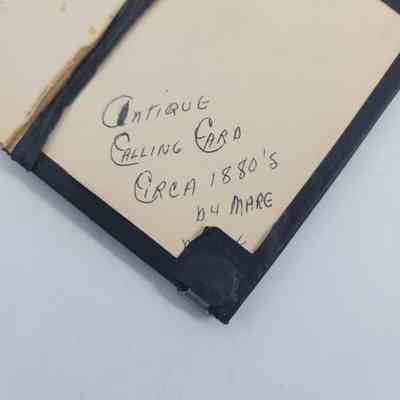 Antique
Calling Card
Circa 1880's
by Mare